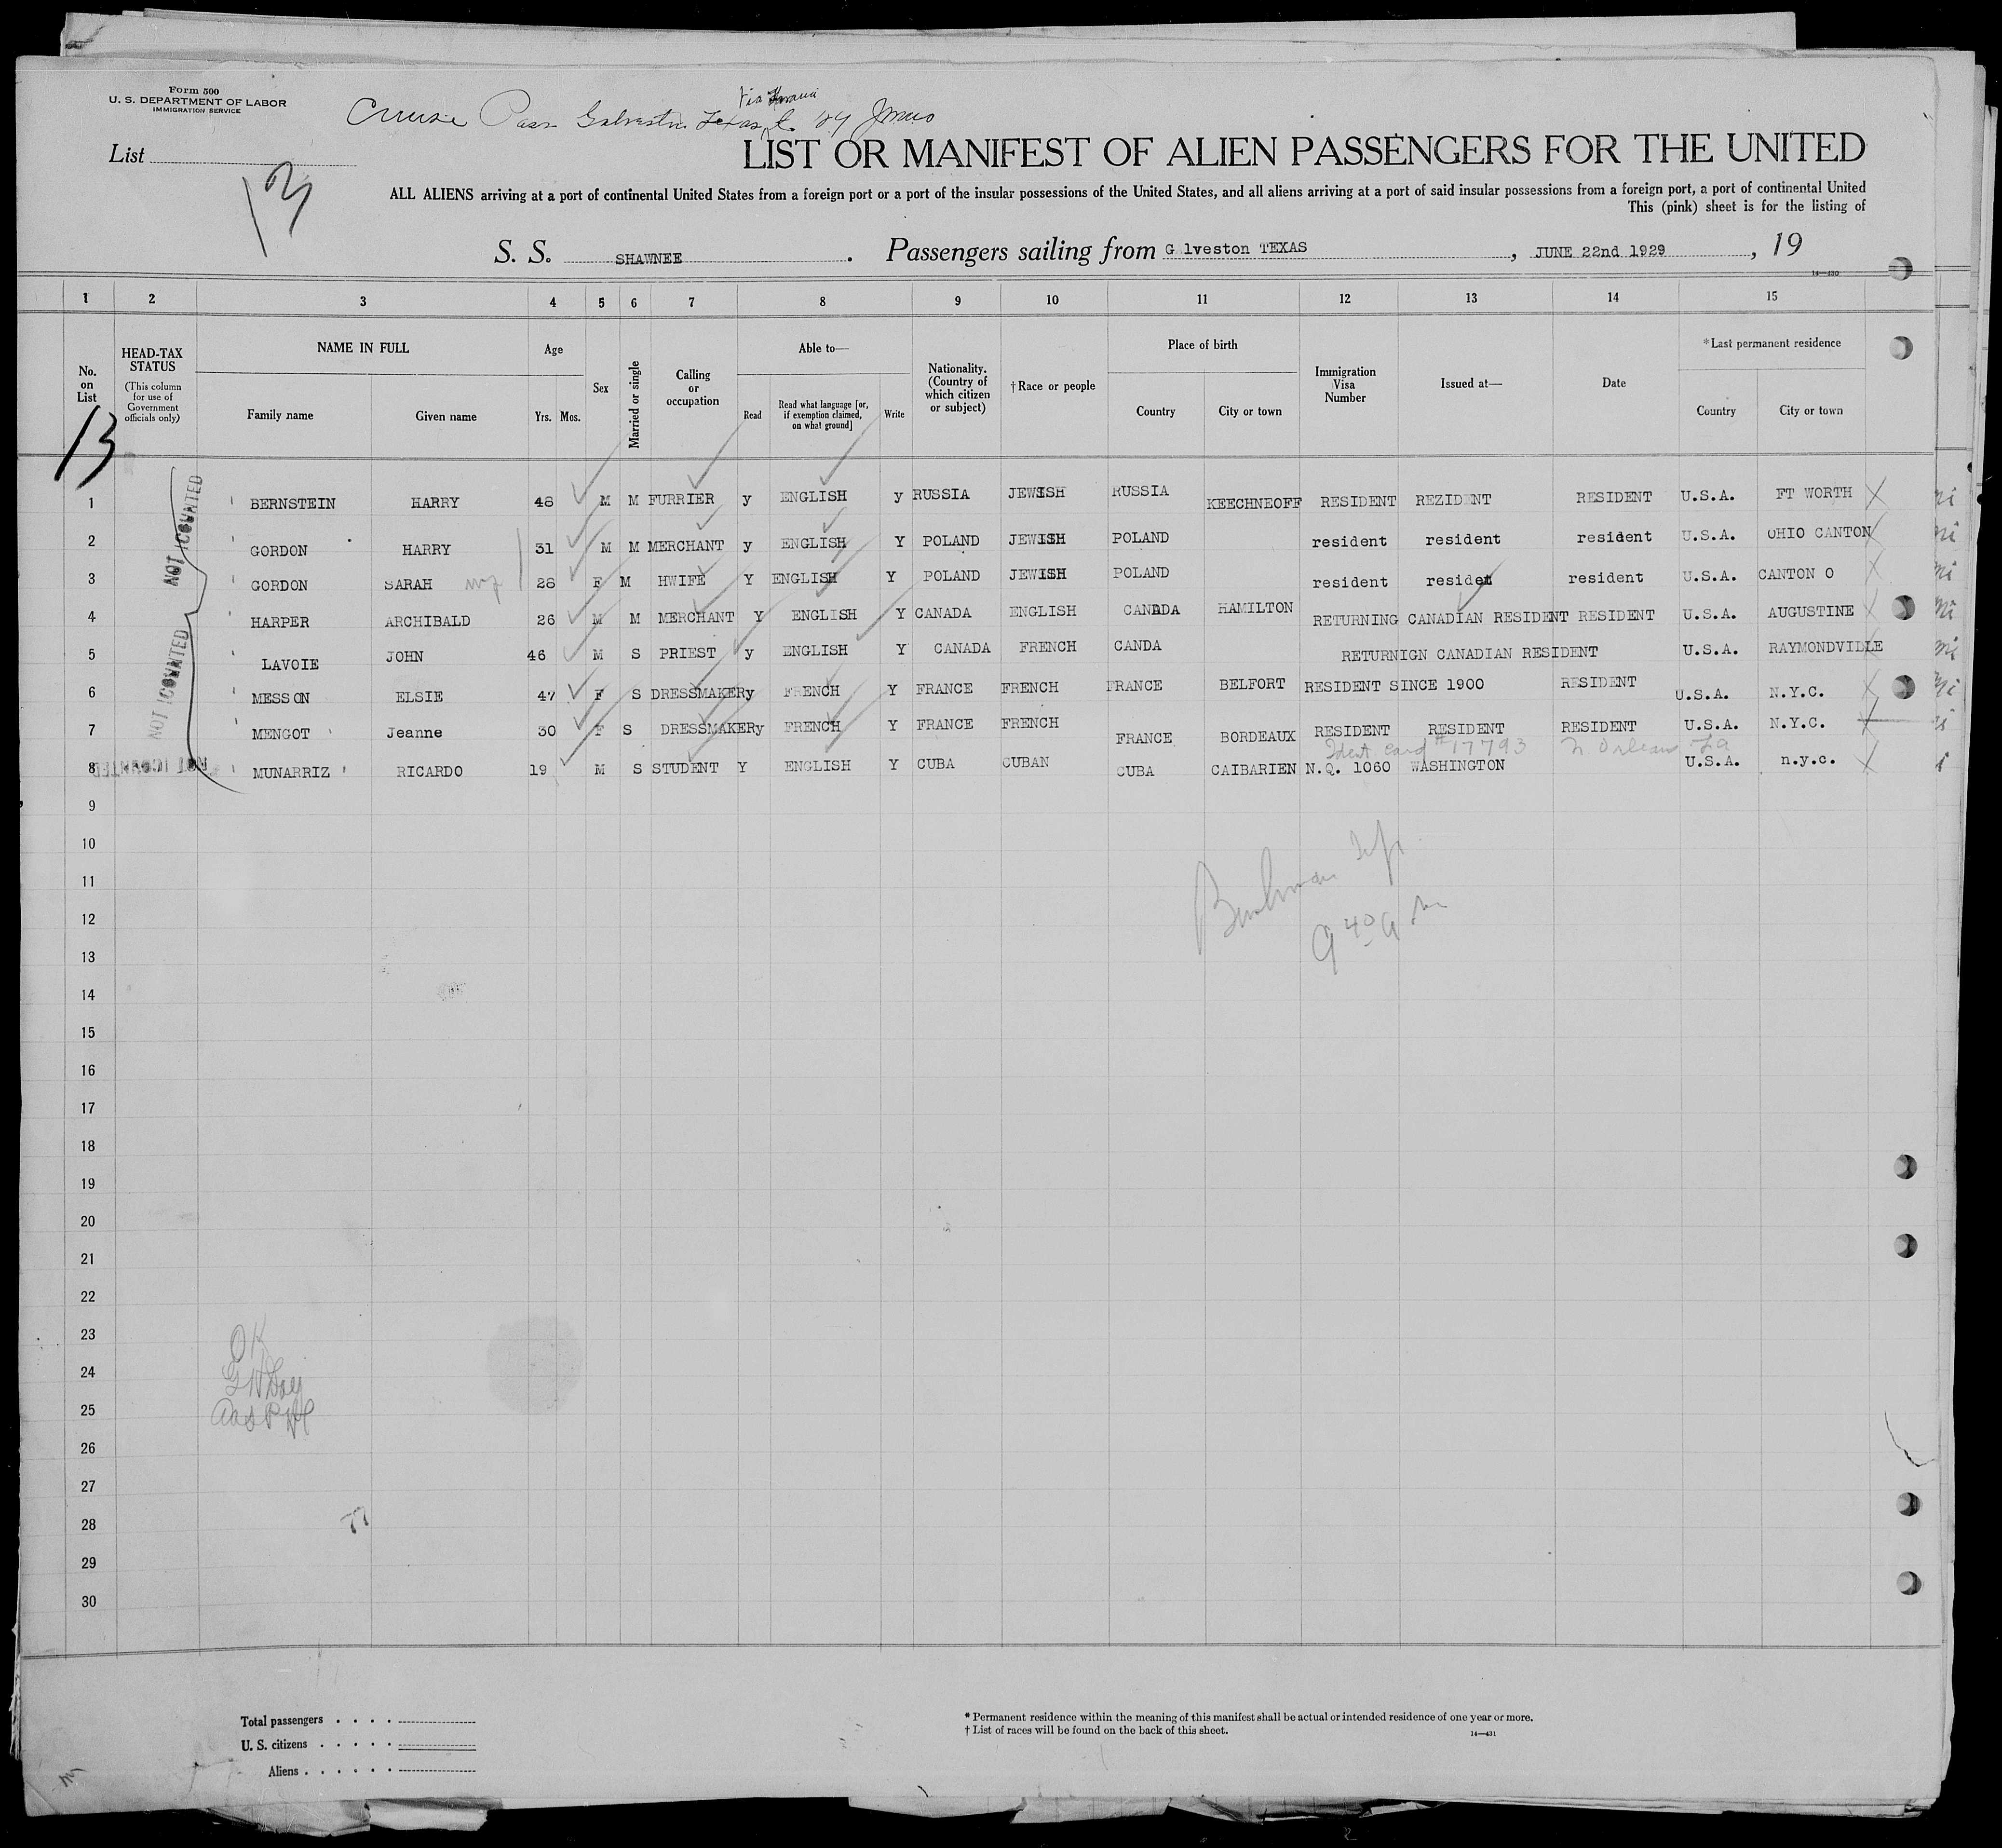 Form 500
U. S. DEPARTMENT OF LABOR
IMMIGRATION SERVICE
Via Havana
Cruise Pass Galveston Texas to
List
13
LIST OR MANIFEST OF ALIEN PASSENGERS FOR THE UNITED
ALL ALIENS arriving at a port of continental United States from a foreign port or a port of the insular possessions of the United States, and all aliens arriving at a port of said insular possessions from a foreign port, a port of continental United
This (pink) sheet is for the listing of
S. S. SHAWNEE . Passengers sailing from G lveston TEXAS , JUNE 22nd 1929 , 19
14—430
1 2 3 4 5 6 7 8 9 10 11 12 13 14 15
No. on List HEAD-TAX STATUS (This column for use of Government officials only) NAME IN FULL Family name Given name Age Yrs. Mos. Sex Married or single Calling or occupation Able to— Read Read what language [or, if exemption claimed, on what ground] Write Nationality. (Country of which citizen or subject) †Race or people Place of birth Country City or town Immigration Visa Number Issued at— Date *Last permanent residence Country City or town
13
NOT COUNTED
NOT COUNTED
NOT COUNTED
1 BERNSTEIN HARRY 48 M M FURRIER y ENGLISH y RUSSIA JEWISH RUSSIA KEECHNEOFF RESIDENT REZIDENT RESIDENT U.S.A. FT WORTH X
2 GORDON HARRY 31 M M MERCHANT y ENGLISH Y POLAND JEWISH POLAND resident resident resident U.S.A. OHIO CANTON X
3 GORDON SARAH 28 F M HWIFE Y ENGLISH Y POLAND JEWISH POLAND resident resident resident U.S.A. CANTON O X
4 HARPER ARCHIBALD 26 M M MERCHANT Y ENGLISH Y CANADA ENGLISH CANADA HAMILTON RETURNING CANADIAN RESIDENT RESIDENT U.S.A. AUGUSTINE X
5 LAVOIE JOHN 46 M S PRIEST y ENGLISH Y CANADA FRENCH CANDA RETURNIGN CANADIAN RESIDENT U.S.A. RAYMONDVILLE
6 MESSON ELSIE 47 F S DRESSMAKER y FRENCH Y FRANCE FRENCH FRANCE BELFORT RESIDENT SINCE 1900 RESIDENT U.S.A. N.Y.C. X
7 MENGOT Jeanne 30 F S DRESSMAKER y FRENCH Y FRANCE FRENCH FRANCE BORDEAUX RESIDENT RESIDENT RESIDENT U.S.A. N.Y.C. X
Ident card #17793 N Orleans La
8 MUNARRIZ RICARDO 19 M S STUDENT Y ENGLISH Y CUBA CUBAN CUBA CAIBARIEN N.Q. 1060 WASHINGTON U.S.A. n.y.c. X
9
10
11
12
9 40 a m
13
14
15
16
17
18
19
20
21
22
23
OK
24
25
26
27
28
29
30
Total passengers . . . .
U. S. citizens . . . . .
Aliens . . . . . .
* Permanent residence within the meaning of this manifest shall be actual or intended residence of one year or more.
† List of races will be found on the back of this sheet.
14—431